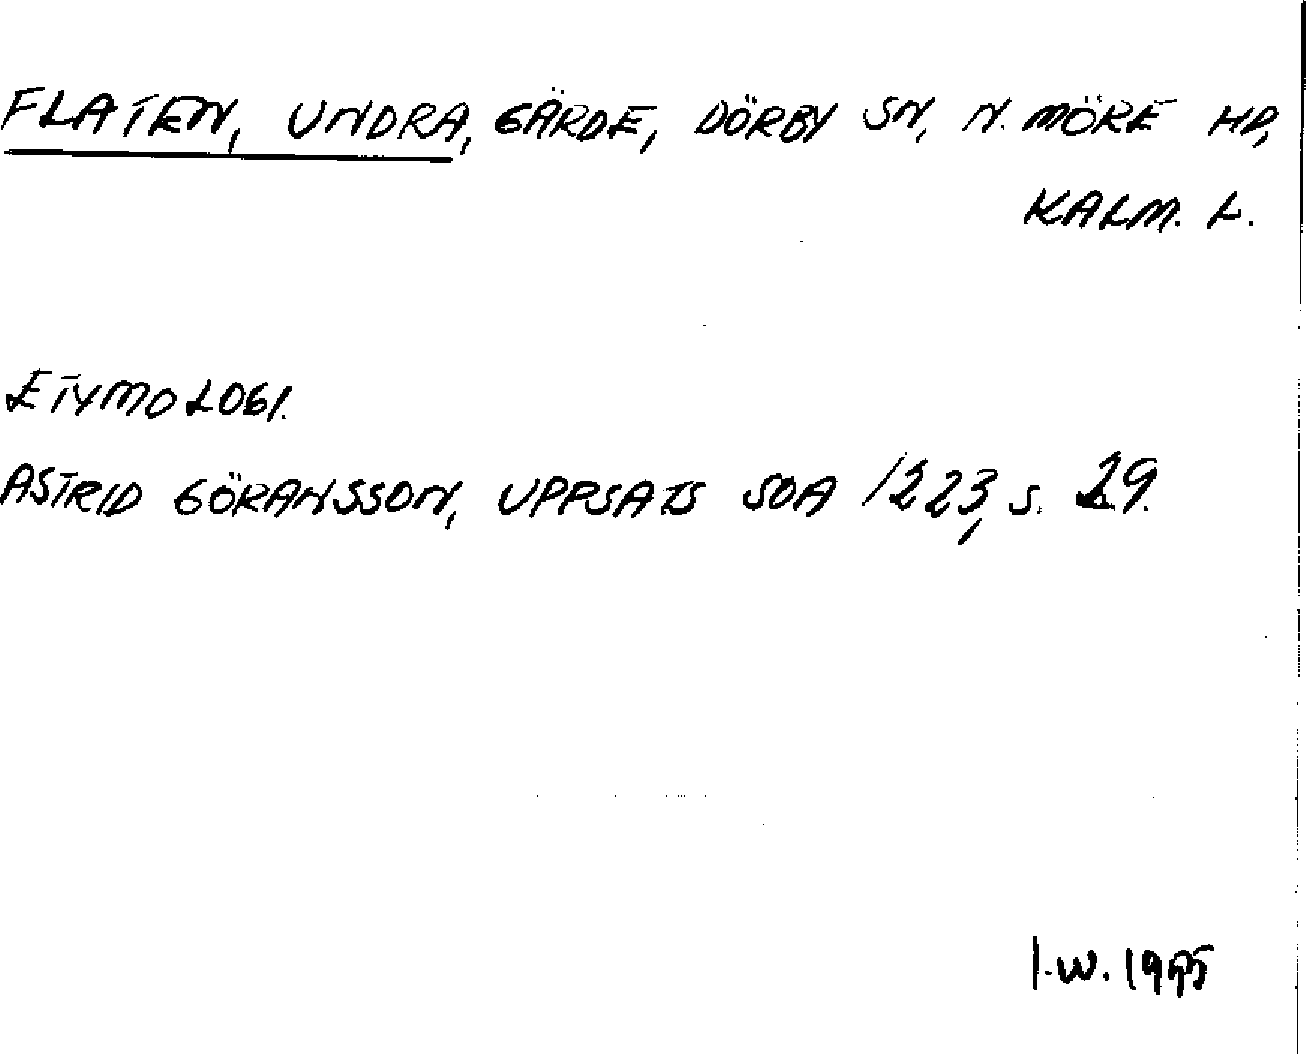 FLATEN, UNDRA, GÄRDE, DÖRBY SN, N. MÖRE HD,
KALM. L.
ETYMOLOGI.
ASTRID GÖRANSSON, UPPSATS SOA 1223, S. 29.
I.W. 1995